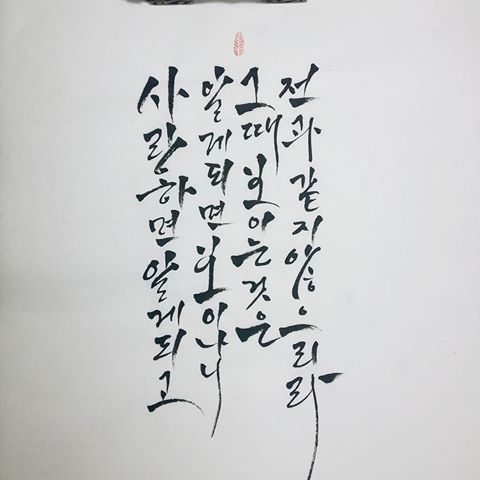 사랑하면 알게되고
알게되면 보이나니
그때 보이는것은
전과 같지않으리라